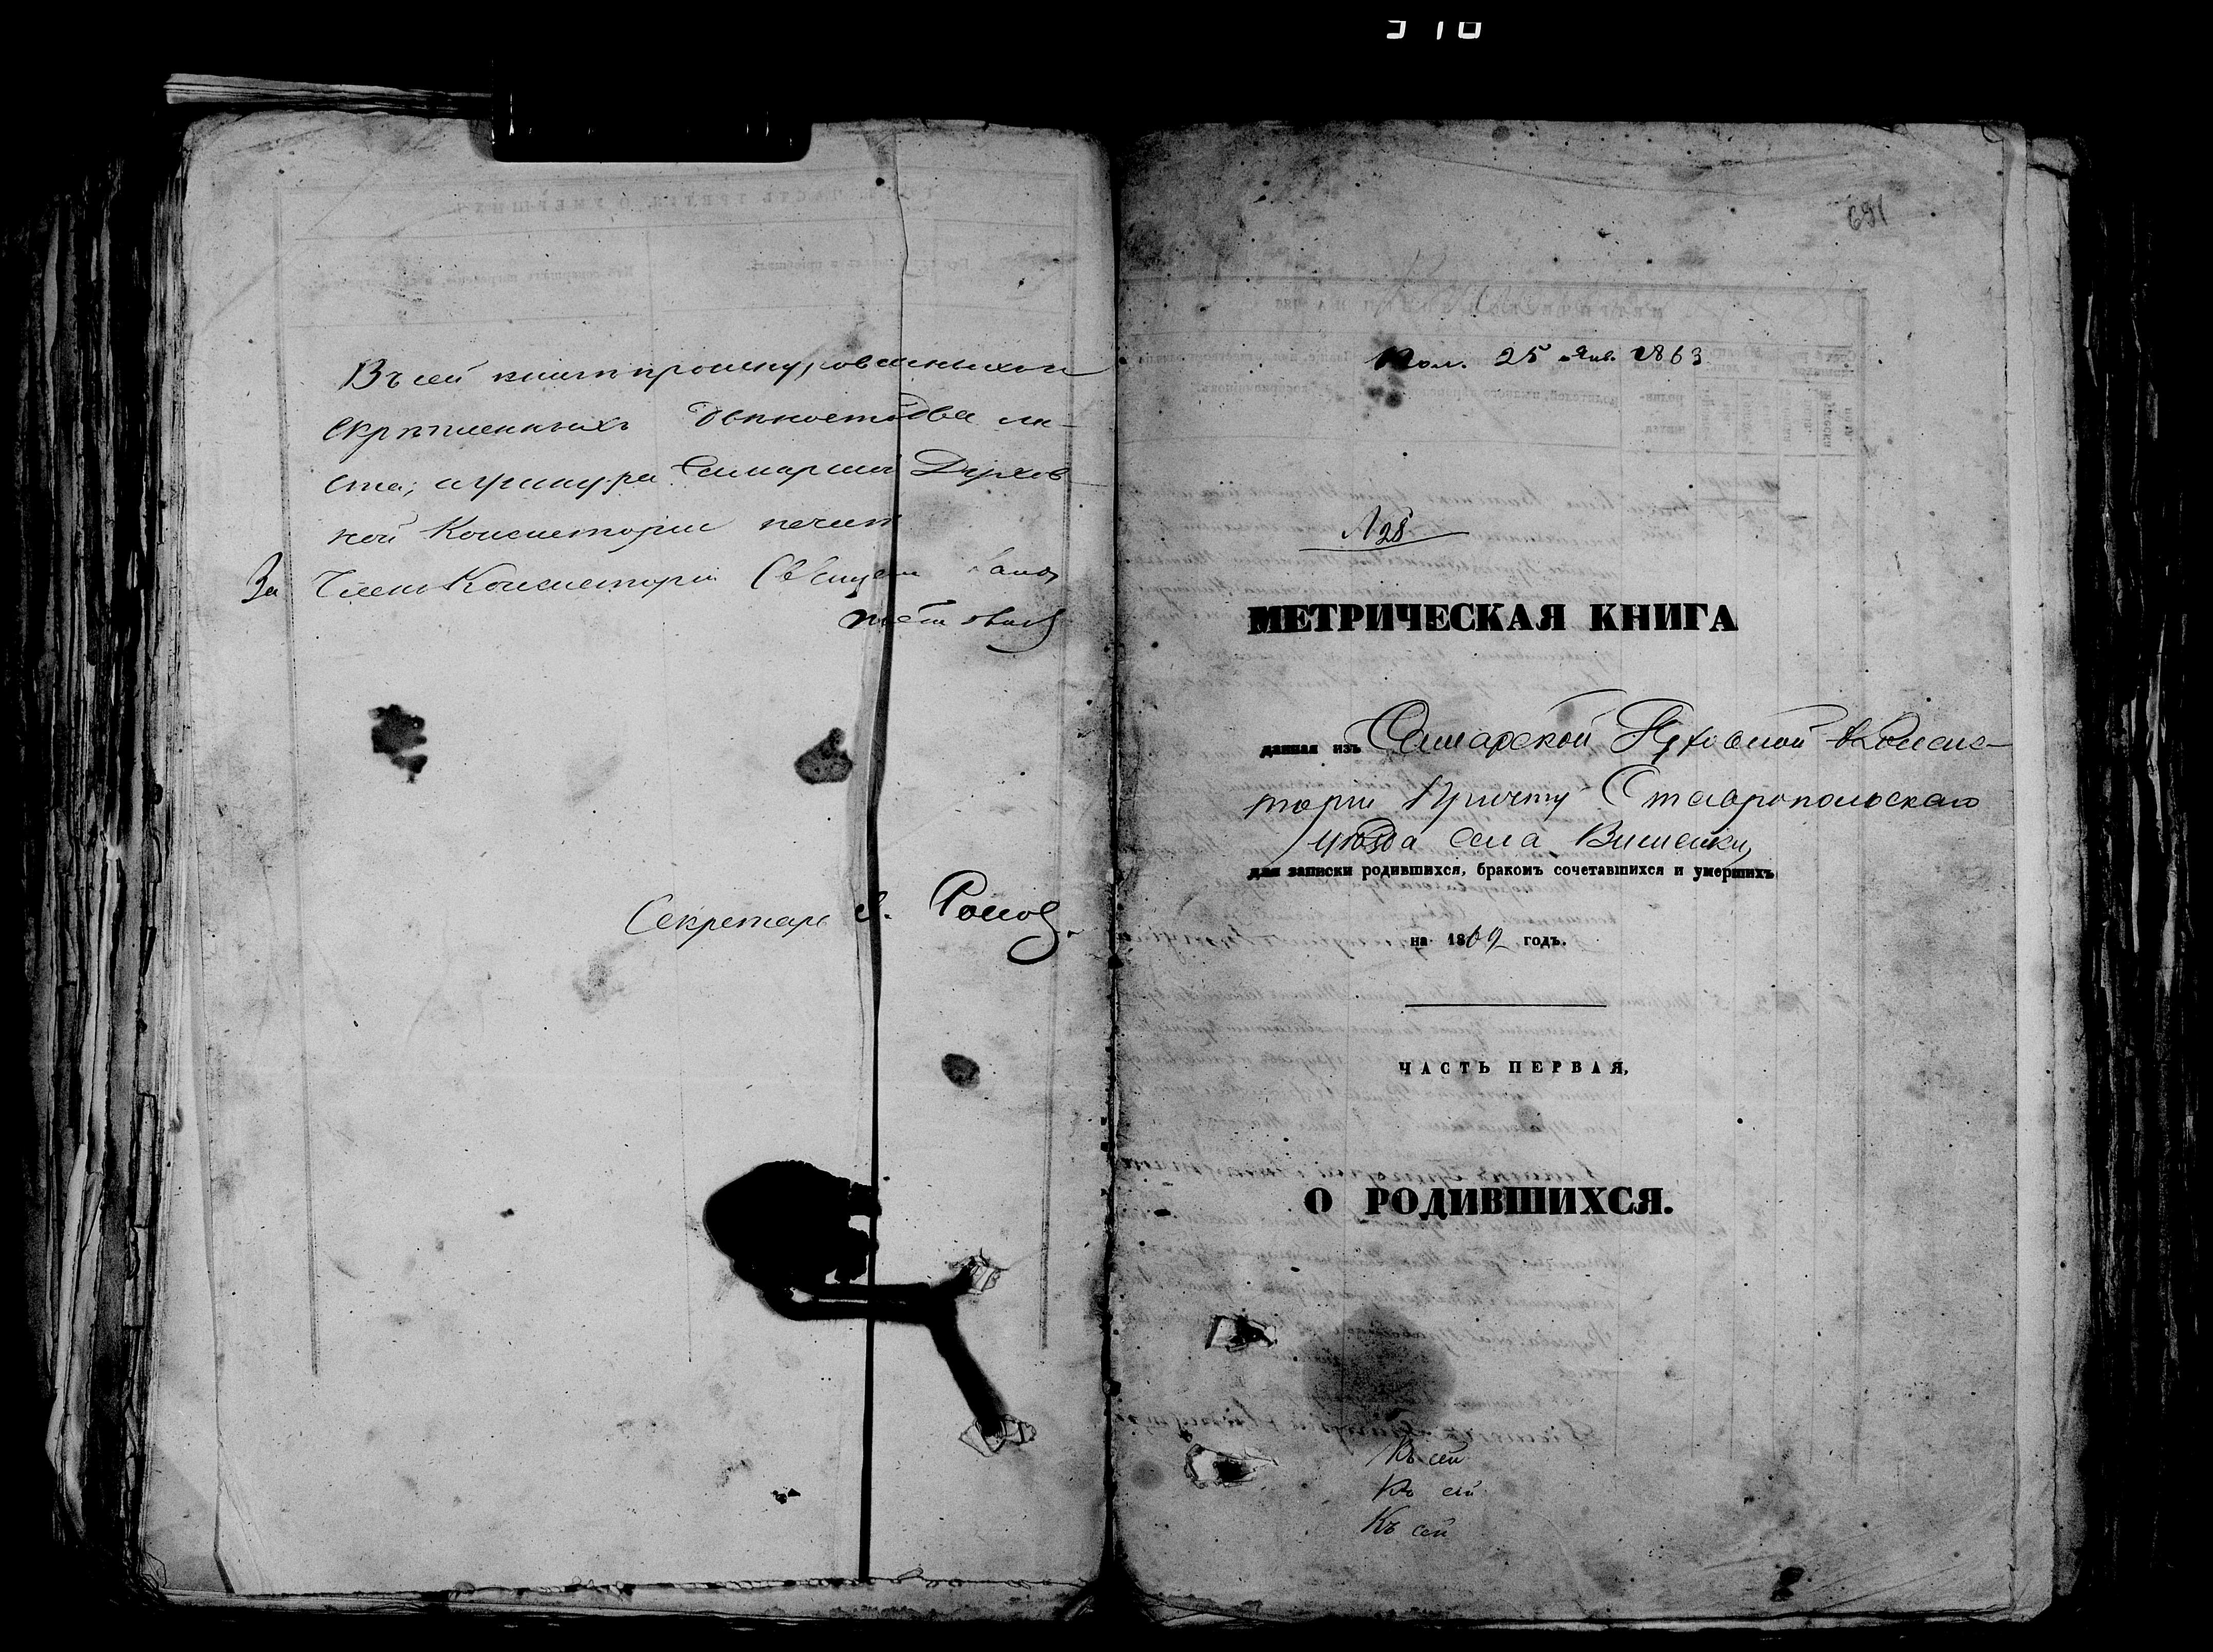 Въ сей книгѣ прошнурованныхъ и
скрѣпленныхъ двѣности два ли-
ста; а у шнура Самарской Духов
ной Консисторіи печать
За Члена Консисторіи Священ
Секретарь А. Поповъ.
691
Пол. 25 Янв. 1863
№ 28
МЕТРИЧЕСКАЯ КНИГА
данная изъ Самарской Духовной Консис-
торіи Причту Ставропольскаго
уѣзда села Вишенки,
для записки родившихся, бракомъ сочетавшихся и умершихъ
на 1862 годъ.
ЧАСТЬ ПЕРВАЯ,
О РОДИВШИХСЯ.
Къ сей
Къ сей
Къ сей